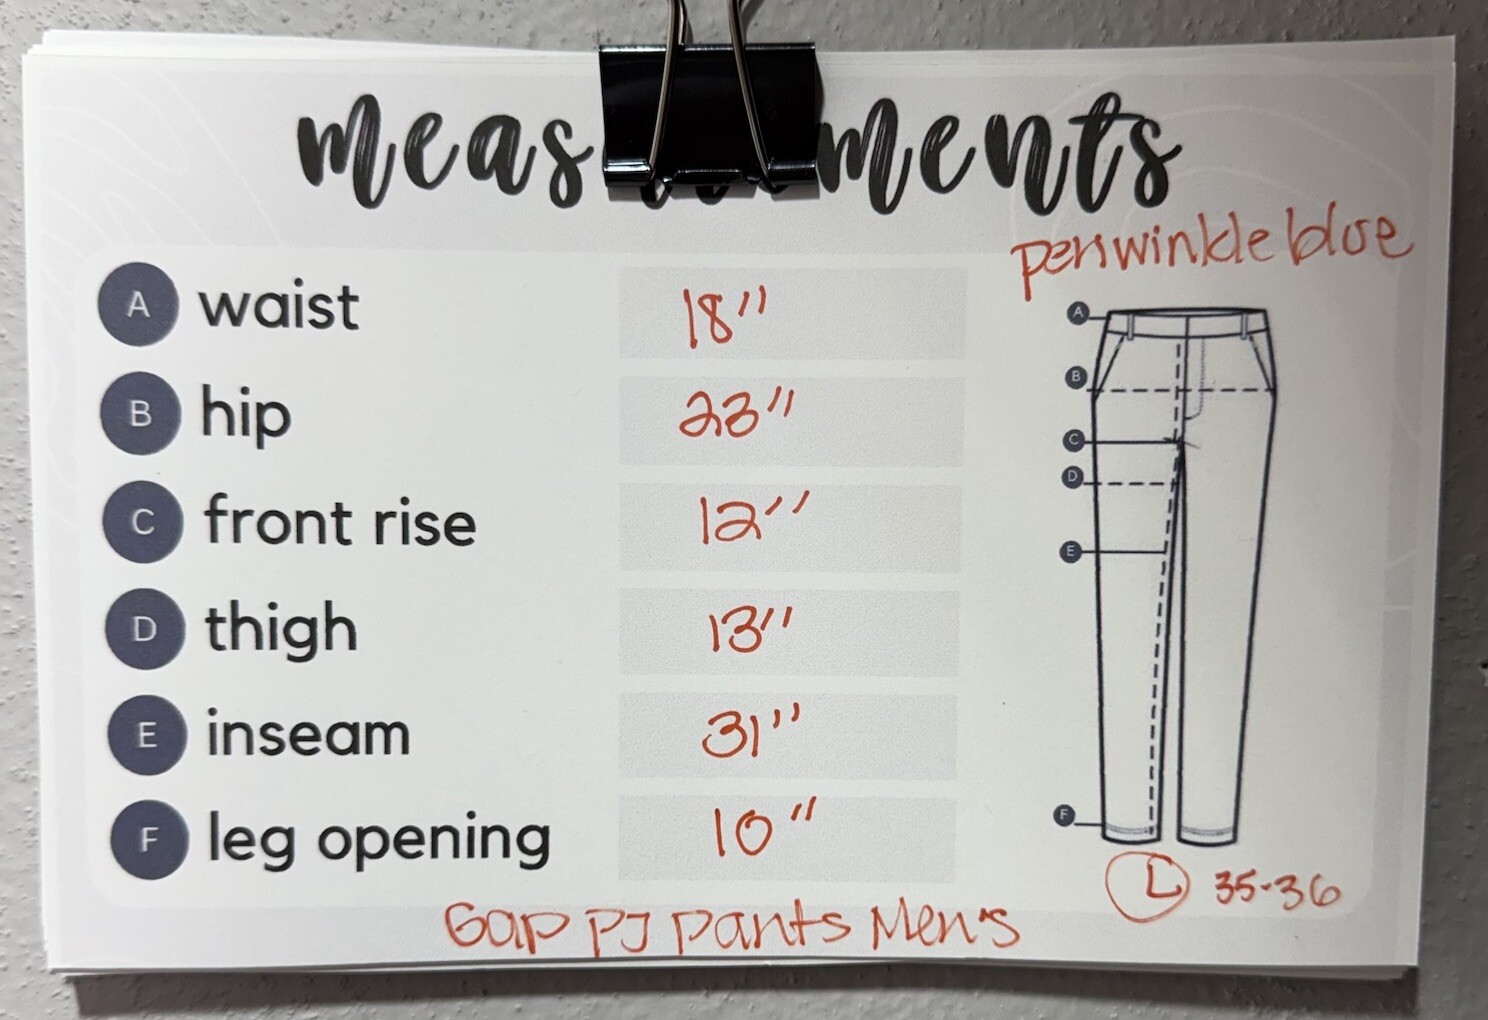 meas ments
periwinkle blue
A waist 18"
B hip 23"
C front rise 12"
D thigh 13"
E inseam 31"
F leg opening 10"
A
B
C
D
E
F
L 35-36
Gap PJ pants Men's